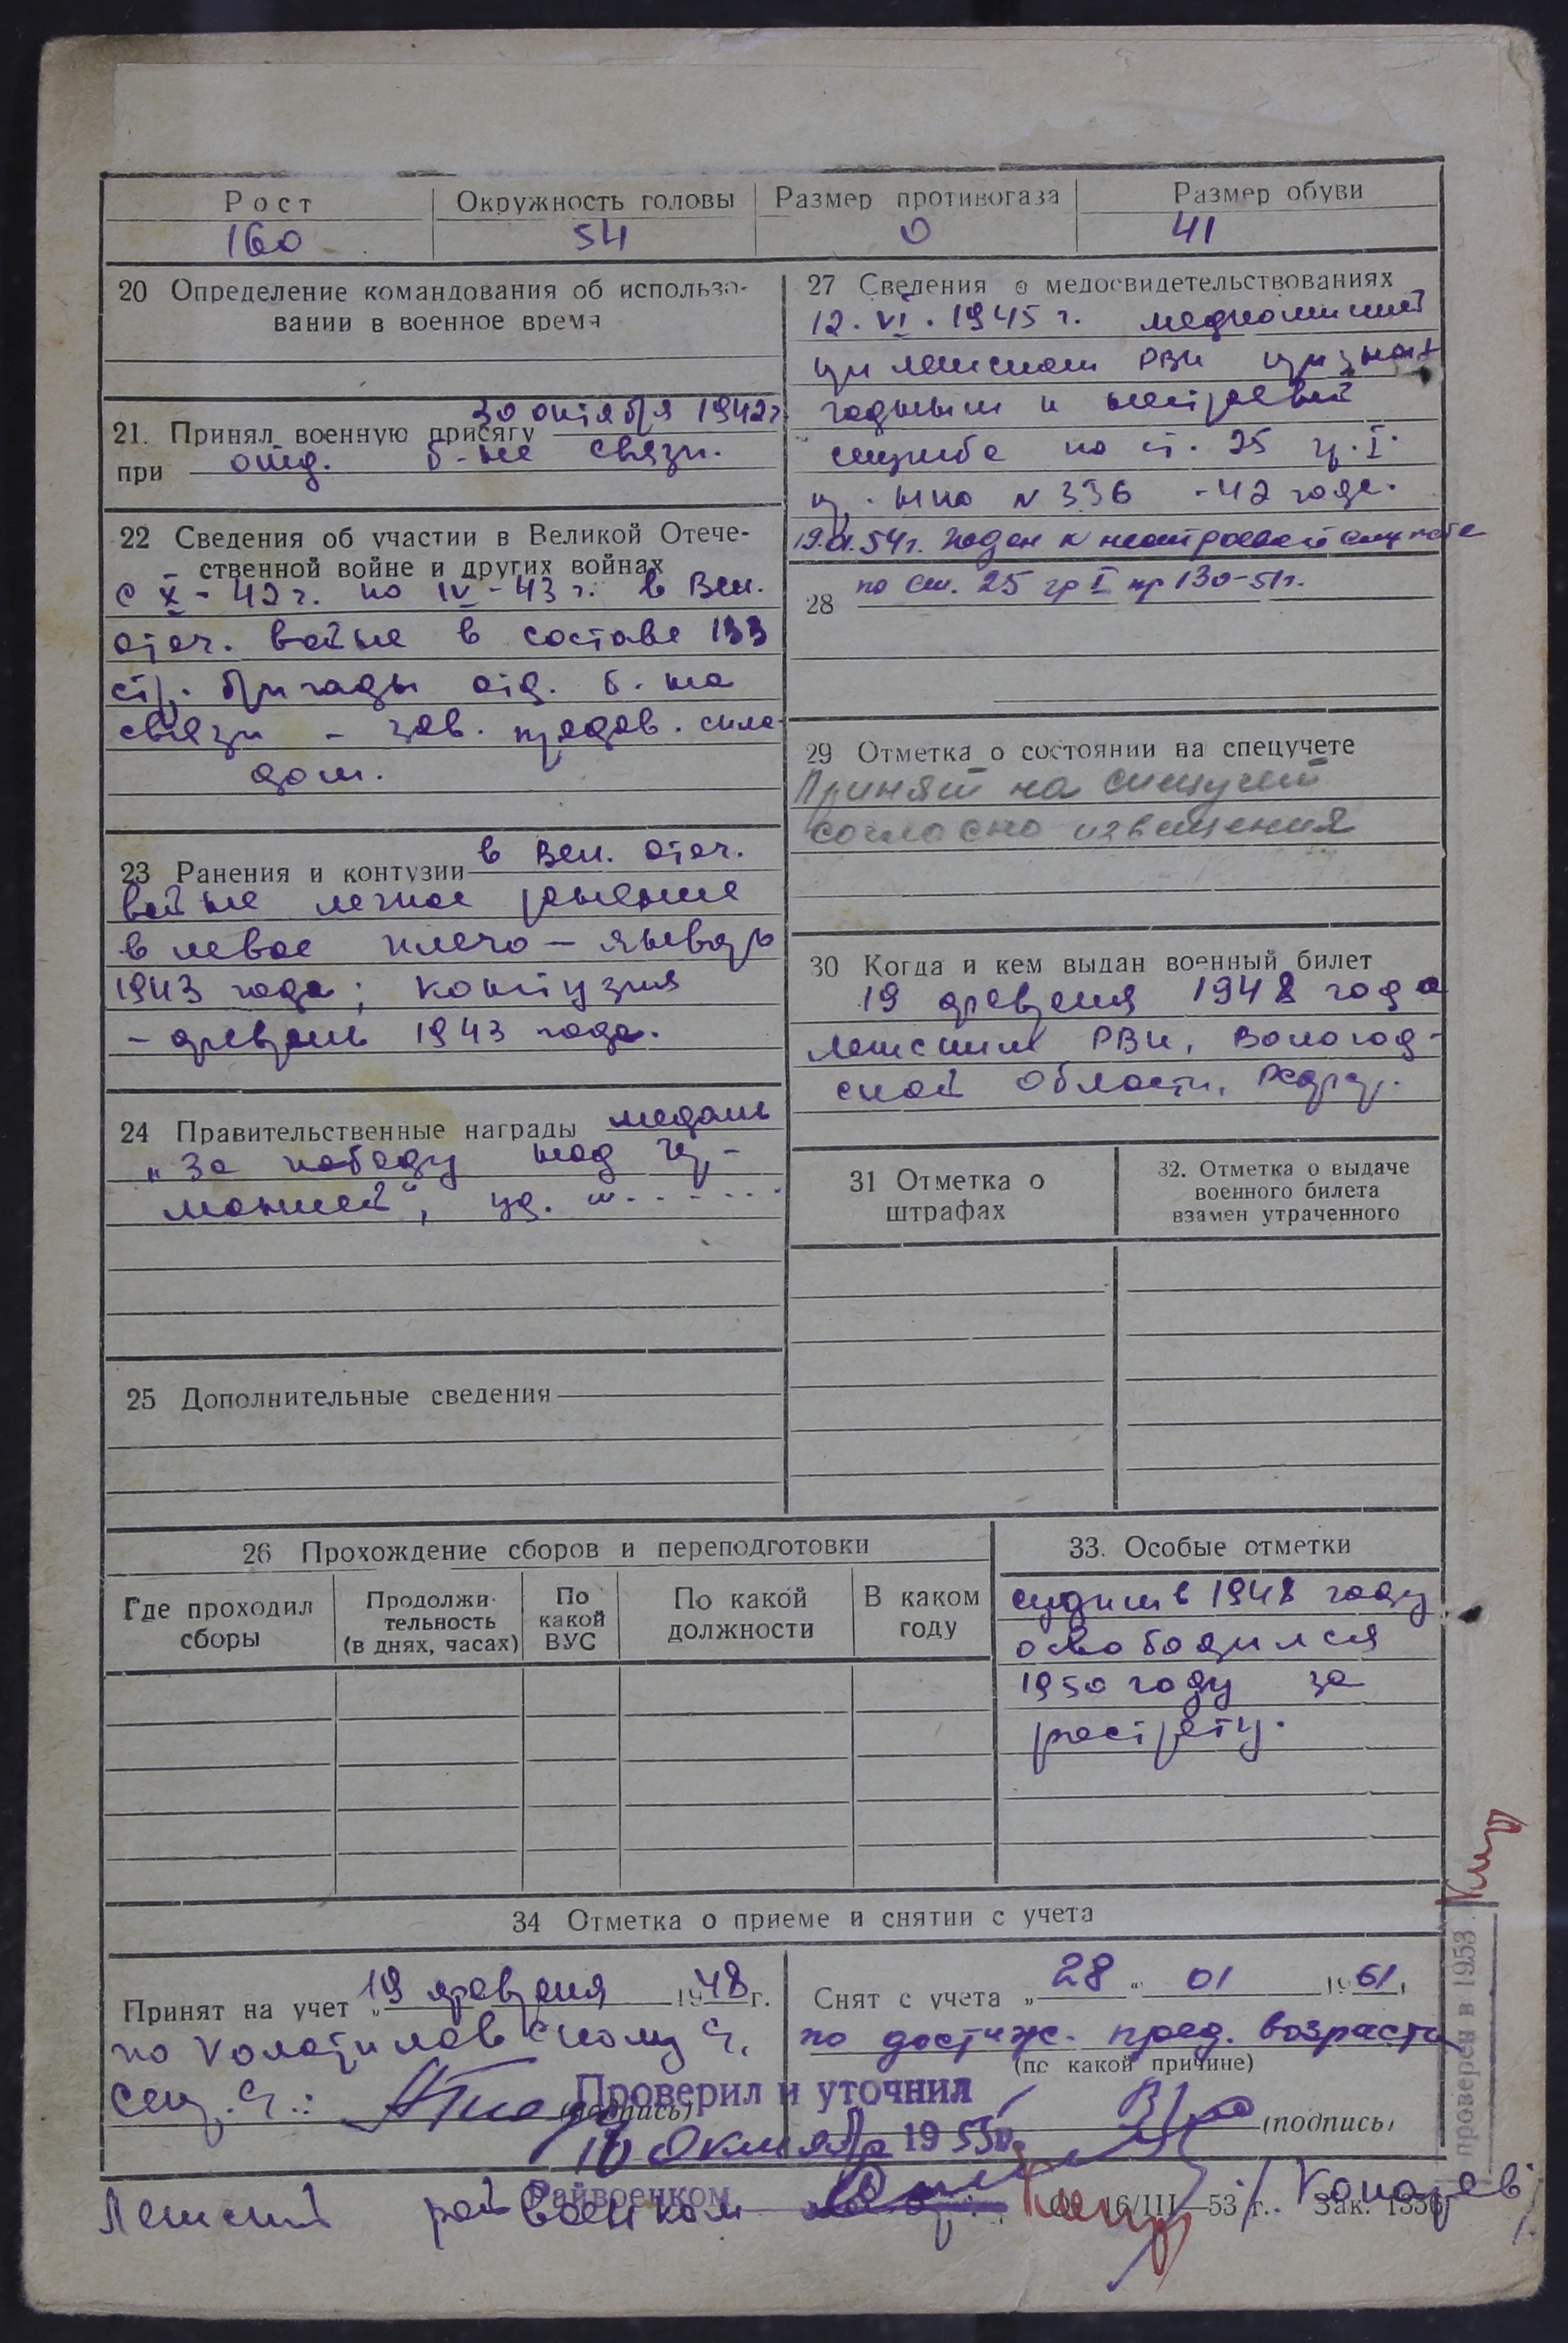 Рост Окружность головы Размер противогаза Размер обуви
160 54 0 41
20 Определение командования об использо-
вании в военное время
21. Принял военную присягу 30 октября 1942 г
при отд. б-не связи.
22 Сведения об участии в Великой Отече-
ственной войне и других войнах
с X - 42 г. по IV - 43 г. в Вел.
отеч. войне в составе 133
стр. бригады отд. б-на
связи - зав. продов. скла-
дом.
23 Ранения и контузии в Вел. отеч.
войне легкое ранение
в левое плечо - январь
1943 года; контузия
- февраль 1943 года.
24 Правительственные награды медаль
„За победу над Гер-
манией“, уд.
25 Дополнительные сведения
27 Сведения о медосвидетельствованиях
12. VI. 1945 г. медкомиссией
при Лежском РВК признан
годным к нестроевой
службе по ст. 25 гр. I.
пр. НКО N 336 - 42 года.
19. 54 г. годен к нестроевой службе
28 по ст. 25 гр I пр 130-51г.
29 Отметка о состоянии на спецучете
Принят на спецучет
согласно извещения
30 Когда и кем выдан военный билет
19 февраля 1948 года
Лежским РВК, Вологод-
ской области,
31 Отметка о
штрафах
32. Отметка о выдаче
военного билета
взамен утраченного
26 Прохождение сборов и переподготовки
Где проходил
сборы
Продолжи-
тельность
(в днях, часах)
По
какой
ВУС
По какой
должности
В каком
году
33. Особые отметки
судим в 1948 году
освободился
1950 году за
растрату.
34 Отметка о приеме и снятии с учета
Принят на учет „19 февраля 1948 г.
по
сек. ч.:
(подпись)
Снят с учета „28 “ 01 1961
по достиж. пред. возраста
(по какой причине)
(подпись)
Проверил и уточнил
10 октября 1955
Райвоенком
Лежский райвоенком
16/III—53 г. Зак. 1356
проверен в 1953